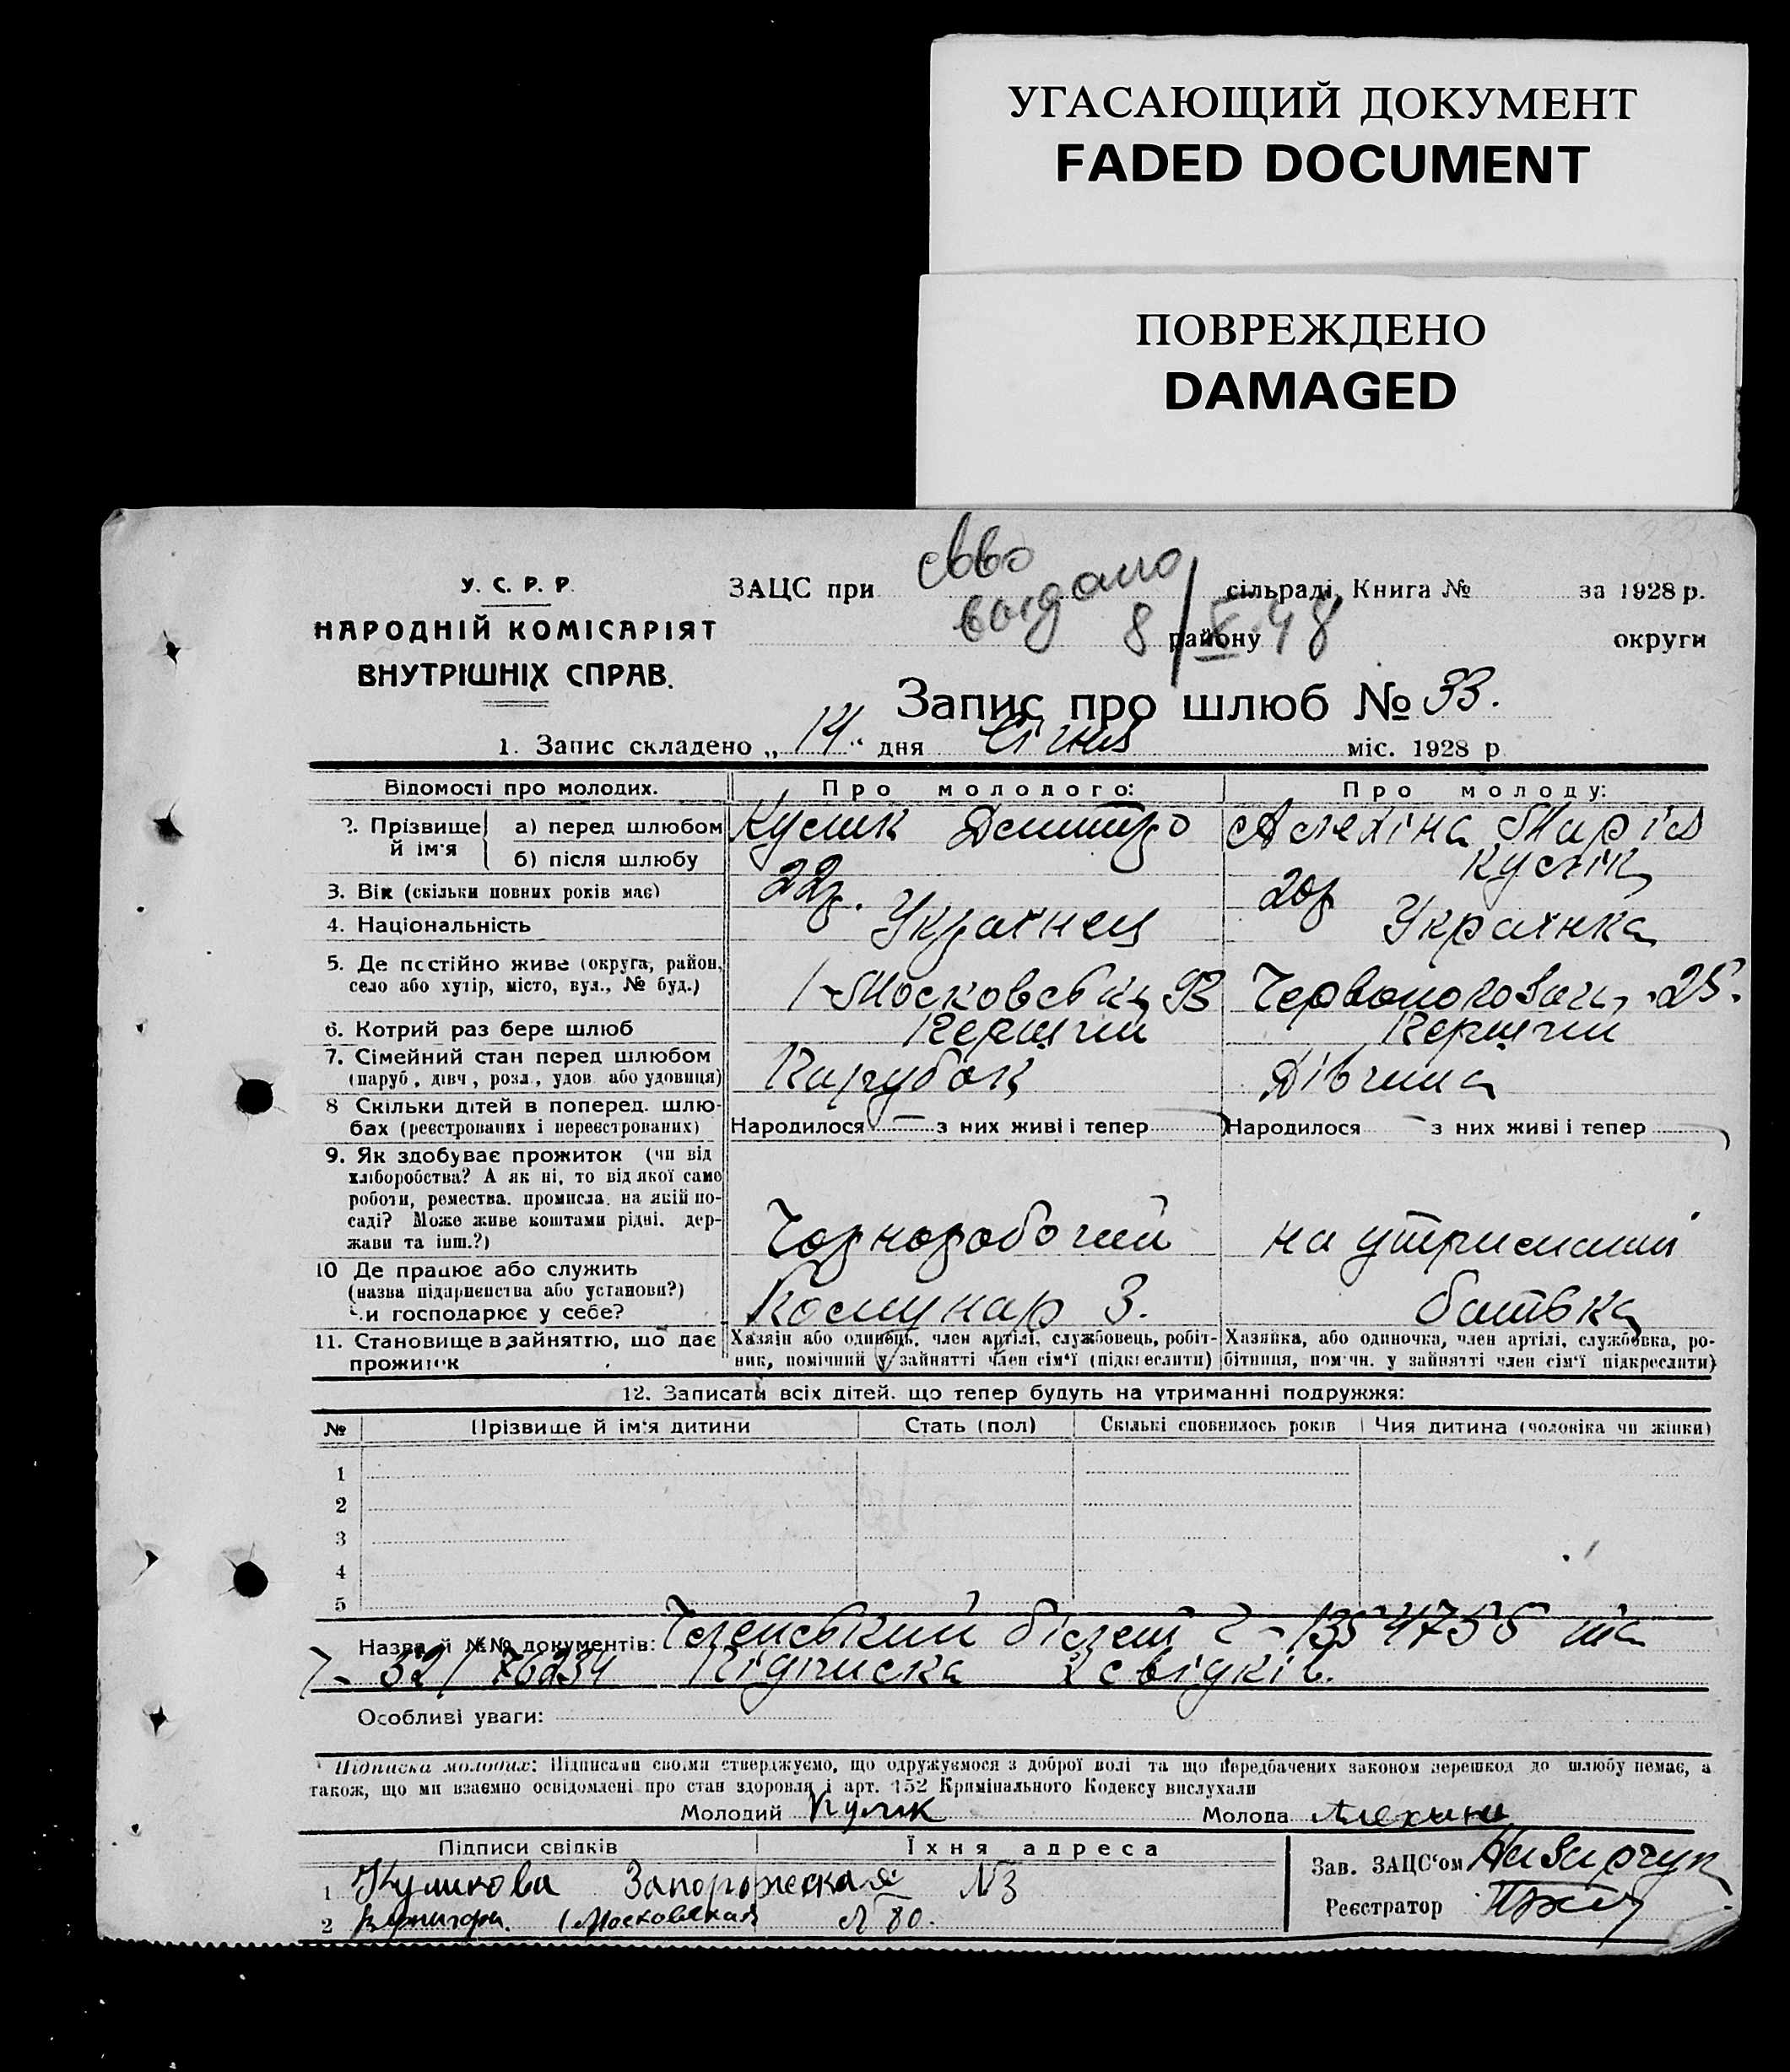 УГАСАЮЩИЙ ДОКУМЕНТ
FADED DOCUMENT
ПОВРЕЖДЕНО
DAMAGED
У. С. Р. Р.
НАРОДНІЙ КОМІСАРІЯТ
ВНУТРІШНІХ СПРАВ.
ЗАЦС при сільраді, Книга № за 1928 р.
району округи
выдано 8/V 48
Запис про шлюб № 33.
1. Запис складено „14“ дня Січня міс. 1928 р
Відомості про молодих. Про молодого: Про молоду:
2. Прізвище й ім'я
а) перед шлюбом Кулик Дмитро Алехіна Марія
б) після шлюбу Кулік
3. Вік (скільки повних років має) 22р. 20р
4. Національність Українец Українка
5. Де постійно живе (округа, район,
село або хутір, місто, вул., № буд.) 1-Московська 93 25.
6. Котрий раз бере шлюб Перший Перший
7. Сімейний стан перед шлюбом
(паруб., дівч., розл., удов. або удовиця) Парубок Дівчина
8 Скільки дітей в поперед. шлю-
бах (реєстрованих і нереєстрованих) Народилося — з них живі і тепер Народилося — з них живі і тепер
9. Як здобуває прожиток (чи від
хліборобства? А як ні, то від якої само
роботи, ремества, промисла, на якій по-
саді? Може живе коштами рідні, дер-
жави та інш.?) Чорноробочий на утриманні
10 Де працює або служить
(назва підприємства або установи?)
Чи господарює у себе? Комунар 3. батька
11. Становище в зайняттю, що дає
прожиток
Хазяїн або одинець, член артілі, службовець, робіт-
ник, помічний у зайнятті член сім'ї (підкреслити)
Хазяйка, або одиночка, член артілі, службовка, ро-
бітниця, пом'чн. у зайнятті член сім'ї підкреслити)
12. Записати всіх дітей, що тепер будуть на утриманні подружжя:
№ Прізвище й ім'я дитини Стать (пол) Скількі сповнилось років Чия дитина (чоловіка чи жінки)
1
2
3
4
5
Назва й №№ документів: Членський білет 2-1354755 та
7- 32/76234 Підписка 2 свідків.
Особливі уваги:
Підписка молодих: Підписами своїми стверджуємо, що одружуємося з доброї волі та що передбачених законом перешкод до шлюбу немає, а
також, що ми взаємно освідомлені про стан здоровля і арт. 152 Кримінального Кодексу вислухали
Молодий Кулик Молода Алехина
Підписи свідків Їхня адреса
1 Куликова Запорожеская №3
2 1 Московская № 80.
Зав. ЗАЦС'ом
Реєстратор